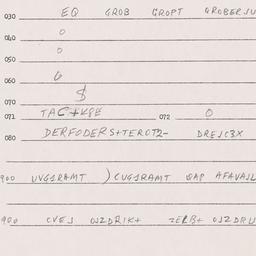 030 EQ GROB GROPT GROBERJU
040 0
050 0
060 6
070 $
071 TAC+K8E 072 0
080 DERFODERS+TEROT2- DREJC3X
900 UVGSRAMT )CUGSRAMT QAP AFAVAJL
900 CVEJ OJZDRIK+ ZELB+ OJZDRU